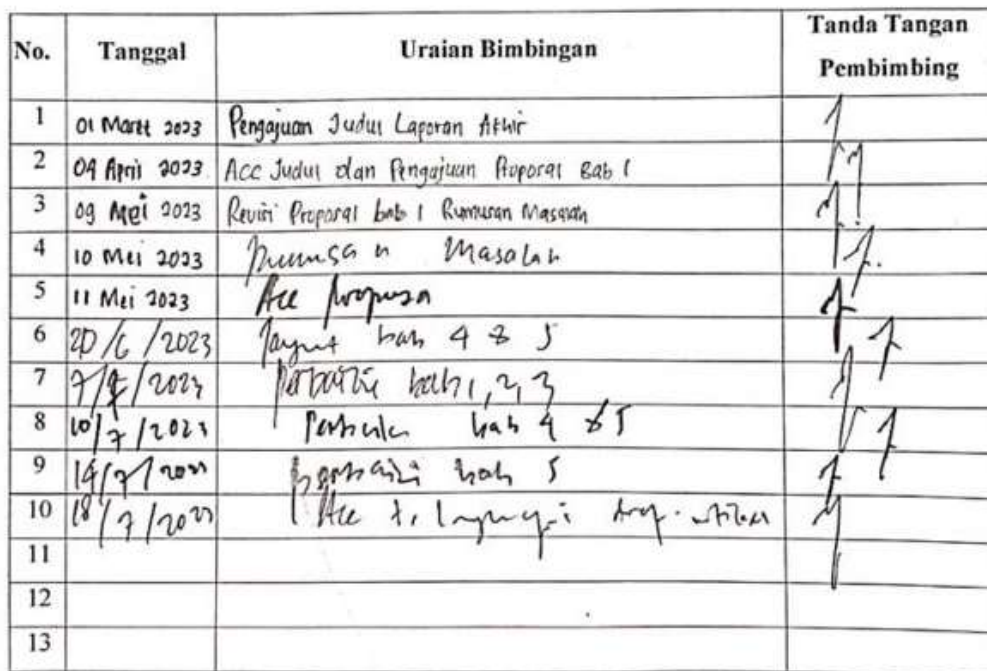 No. Tanggal Uraian Bimbingan Tanda Tangan Pembimbing
1 01 Maret 2023 Pengajuan Judul Laporan Akhir
2 04 April 2023 Acc Judul dan Pengajuan Proporal Bab 1
3 09 Mei 2023 Revisi Proporal bab 1 Rumusan Masalah
4 10 Mei 2023 Rumusan Masalah
5 11 Mei 2023 Acc
6 20/6/2023 bab 4 & 5
7 7/7/2023 Perbaiki bab 1, 2, 3
8 10/7/2023 Perbaiki bab 4 & 5
9 14/7/2023 Perbaiki bab 5
10 18/7/2023 Acc
11
12
13